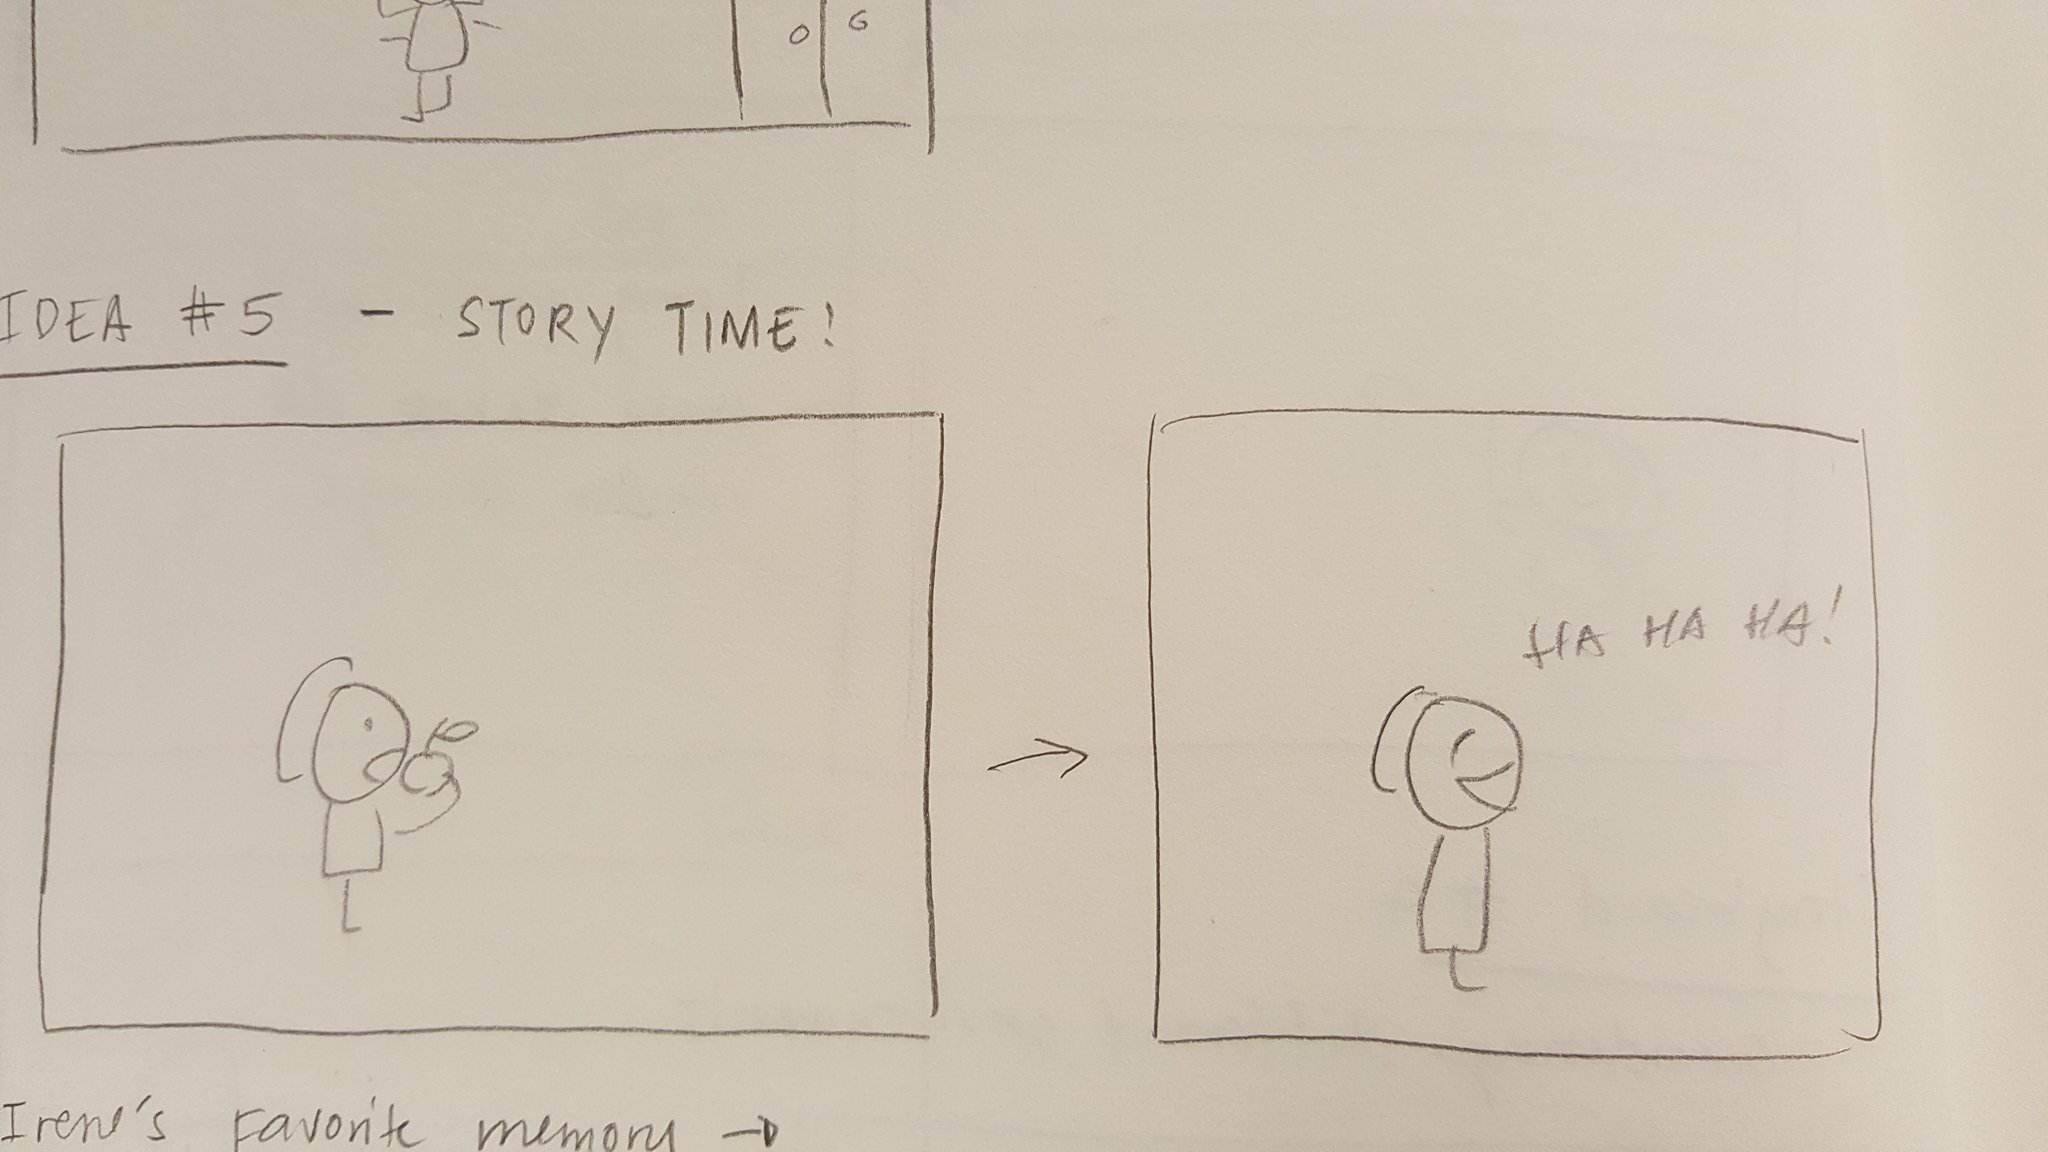 IDEA #5 - STORY TIME!
HA HA HA!
Irene's Favorite memory →